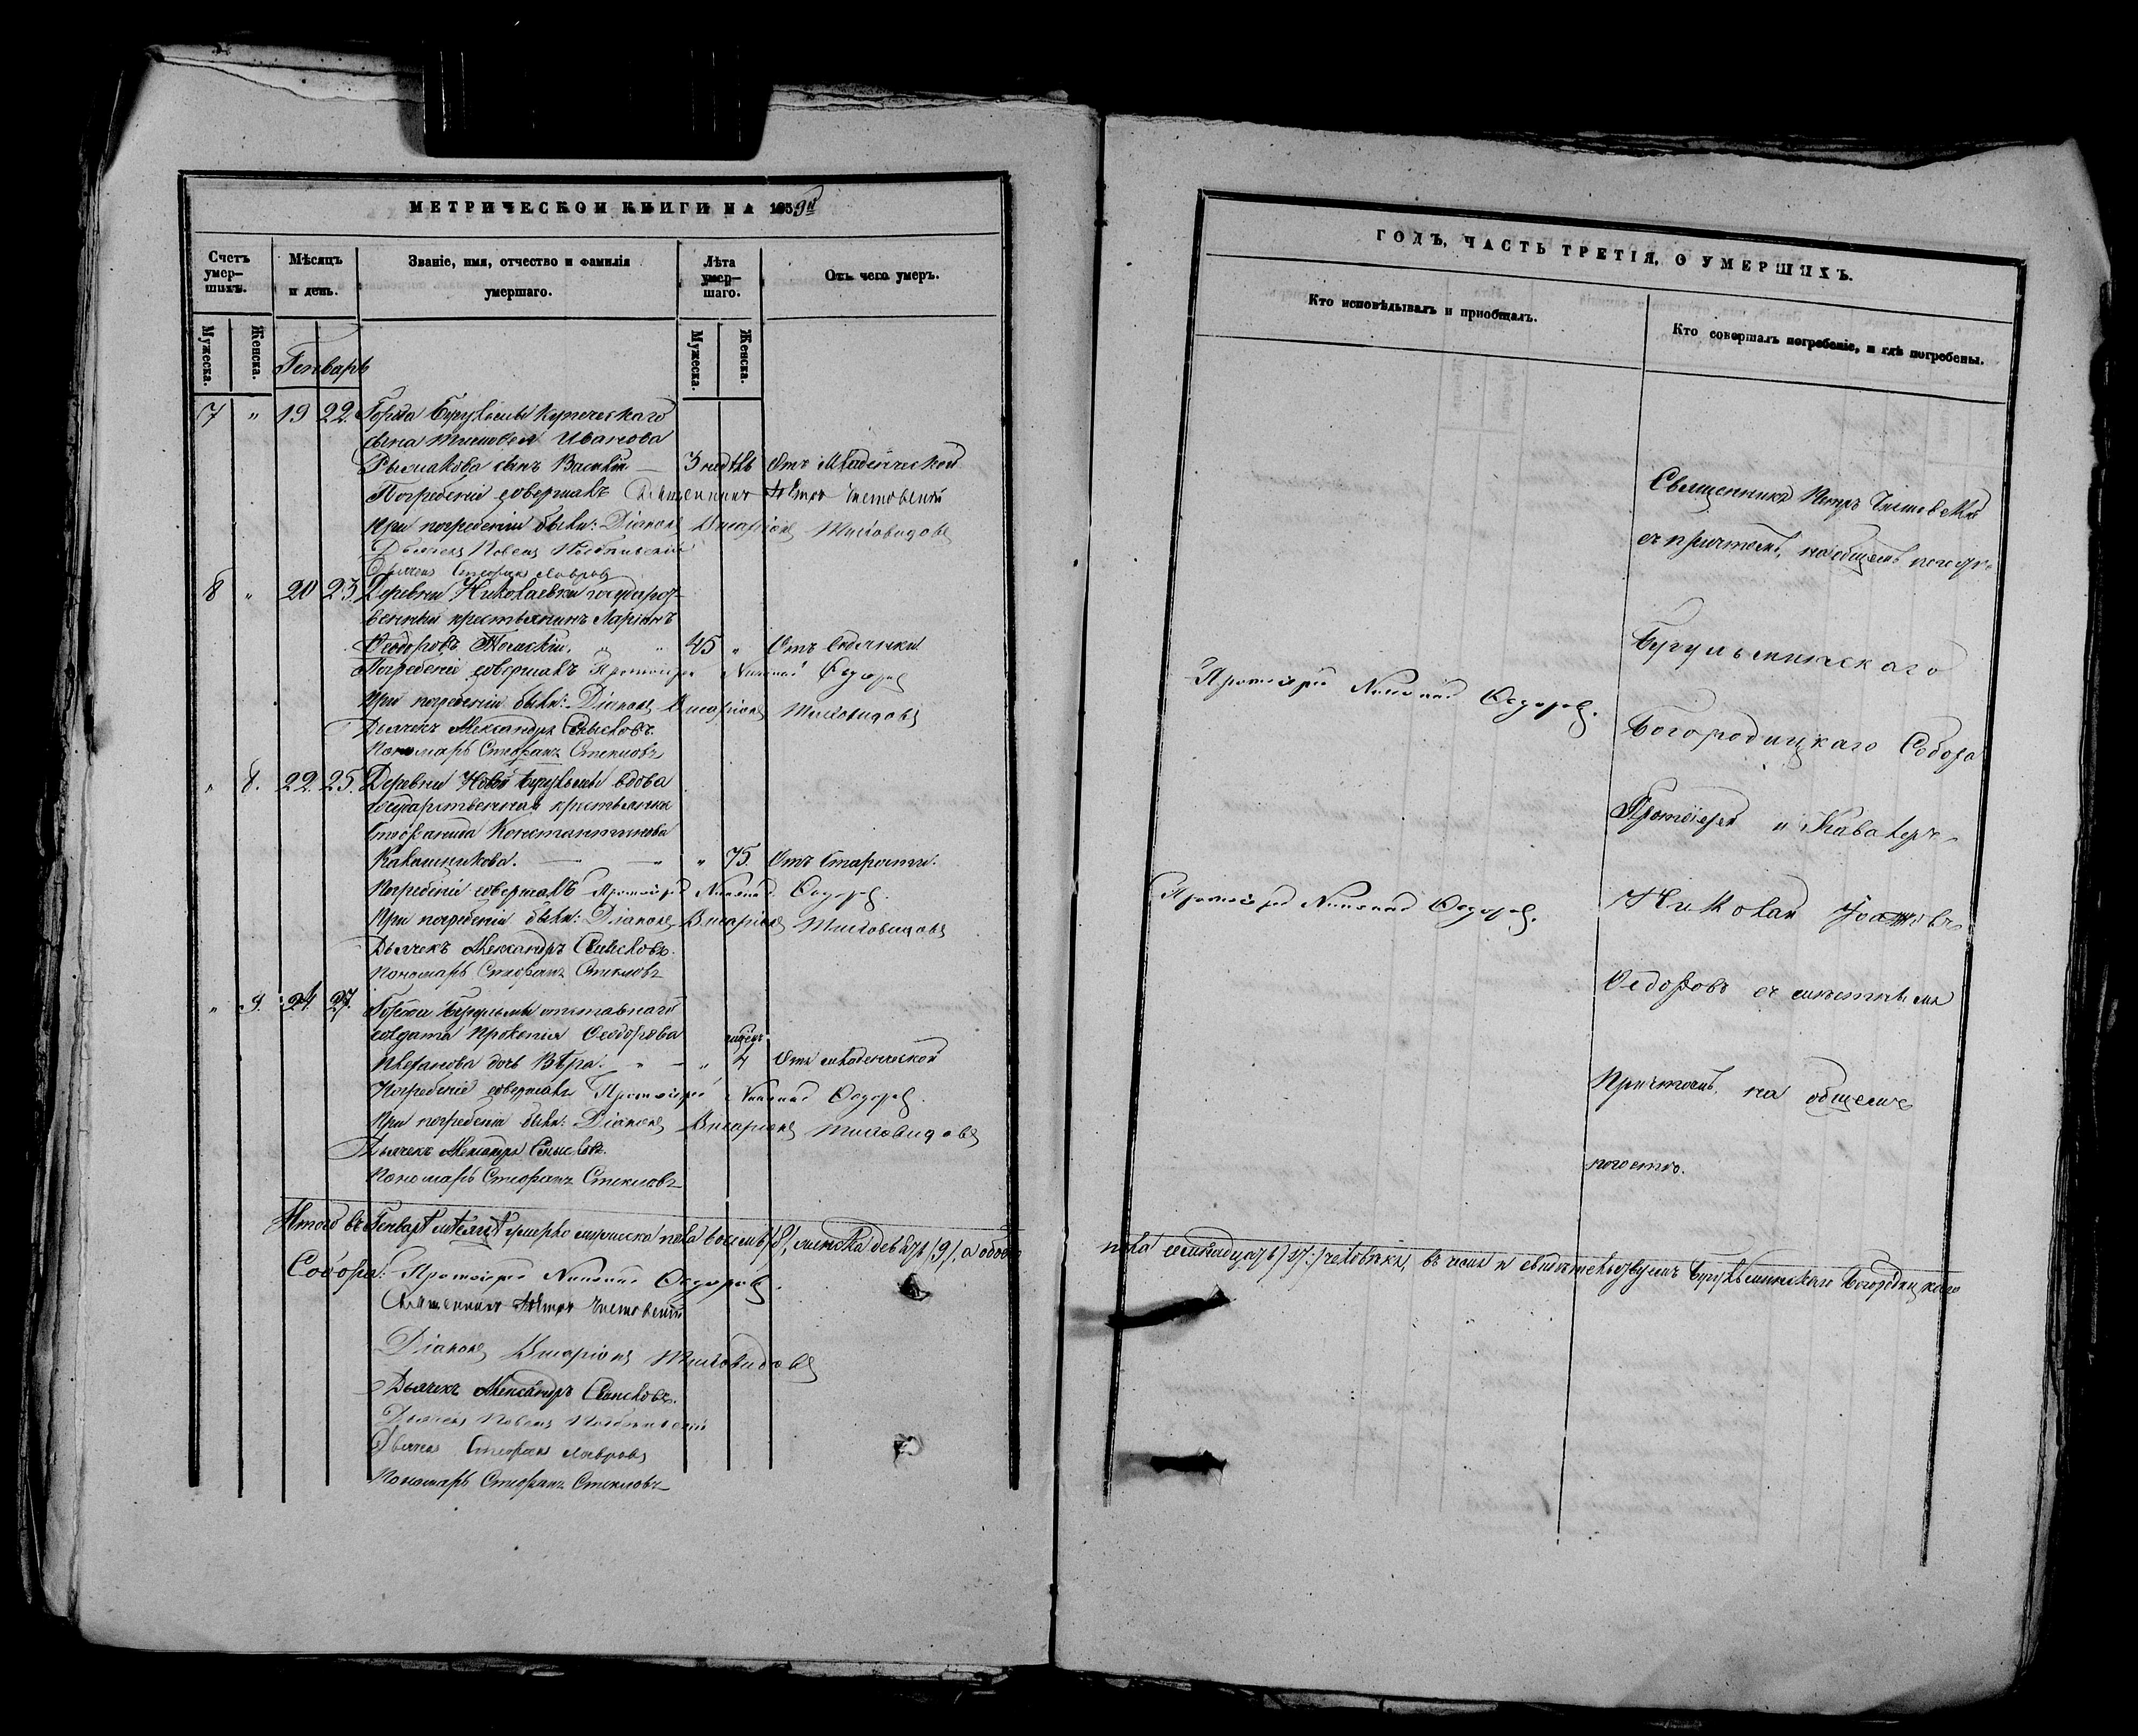 МЕТРИЧЕСКОЙ КНИГИ НА 1859й
Счетъ умер-шихъ.
Мѣсяцъ и день.
Званіе, имя, отчество и фамилія умершаго.
Лѣта умер-шаго.
Отъ чего умеръ.
Мужеска.
Женска.
Мужеска.
Женска.
Генварь
7 " 19 22. Города Бугульмы купеческаго
сына Тимофея Иванова
сынъ Василій — 3 недѣль Отъ младенческой
Погребеніе совершалъ Священникъ Петръ Чистовскій
При погребеніи были: Діаконъ Виссаріонъ Тиховидовъ
Дьячекъ Павелъ
Дьячекъ Стефанъ Лавровъ
8 " 20 23. Деревни Николаевки государст-
венный крестьянинъ Ларіонъ
Ѳеодоровъ " " 45 " Отъ водянки
Погребеніе совершалъ Протоіерей Николай Ѳедоровъ
При погребеніи были: Діаконъ Виссаріонъ Тиховидовъ
Дьячекъ Александръ Смысловъ.
Пономарь Стефанъ Стекловъ
" 8. 22. 25. Деревни Новой Бугульмы вдова
государственная крестьянка
Стефанида Константинова
Калашникова. — — " 75. Отъ старости.
Погребеніе совершалъ Протоіерей Николай Ѳедоровъ.
При погребеніи были: Діаконъ Виссаріонъ Тиховидовъ
Дьячекъ Александръ Смысловъ.
Пономарь Стефанъ Стекловъ
" 9. 24. 27. Города Бугульмы отставнаго
солдата Прокопія Ѳеодорова
дочь Вѣра. " — " 4 Отъ младенческой
Погребеніе совершалъ Протоіерей Николай Ѳедоровъ.
При погребеніи были: Діаконъ Виссаріонъ Тиховидовъ
Дьячекъ Александръ Смысловъ.
Пономарь Стефанъ Стекловъ
Итого въ Генварѣ мѣсяцѣ умерло мужеска пола восемь /8/, женска девять /9/, а обоего
Собора: Протоіерей Николай Ѳедоровъ.
Священникъ Петръ Чистовскій
Діаконъ Виссаріонъ Тиховидовъ
Дьячекъ Александръ Смысловъ.
Дьячекъ Павелъ
Дьячекъ Стефанъ Лавровъ
Пономарь Стефанъ Стекловъ
ГОДЪ, ЧАСТЬ ТРЕТІЯ, О УМЕРШИХЪ.
Кто исповѣдывалъ и пріобщалъ.
Кто совершалъ погребеніе, и гдѣ погребены.
Священникъ Петръ Чистовскій
съ причтомъ, на общемъ погостѣ
Бугульминскаго
Протоіерей Николай Ѳедоровъ.
Богородицкаго Собора
Протоіерей и Кавалеръ
Протоіерей Николай Ѳедоровъ.
Николай Іоанновъ
Ѳедоровъ съ
Причтомъ, на общемъ
погостѣ.
пола семнадцать /:17:/ человѣкъ, въ чемъ и свидѣтельствуемъ Бугульминскаго Богородицкаго